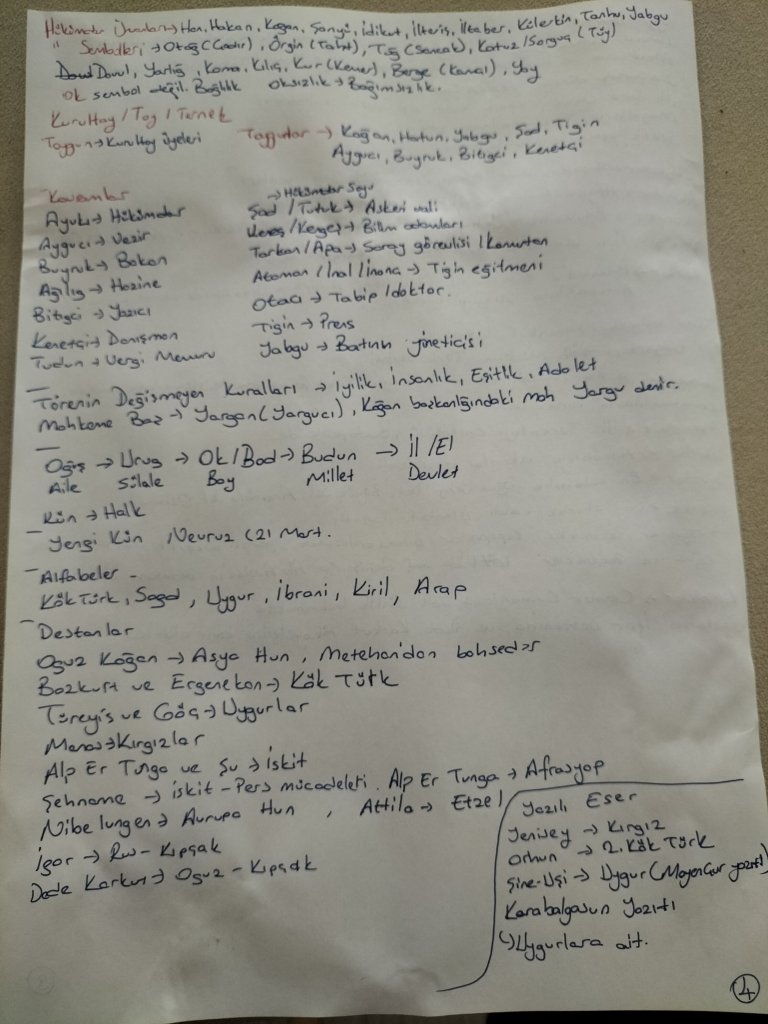 Hükümdar Ünvanları → Han, Hakan, Kağan, Şanyü, İdikut, İlteriş, İltaber, Külerkin, Tanhu, Yabgu
" Sembolleri → Otağ (Çadır), Örgin (Taht), Tuğ (Sancak), Kotuz/Sorguç (Tüy)
Davul, Yarlığ, Kama, Kılıç, Kur (Kemer), Berge (Kamçı), Yay
Ok sembol değil. Bağlılık Oksızlık → Bağımsızlık.
Kurultay / Toy / Ternek
Toygun → Kurultay üyeleri
Toygunlar → Kağan, Hatun, Yabgu, Şad, Tigin
Aygucı, Buyruk, Bitigci, Kenetçi
Kavramlar
Ayukı → Hükümdar
Aygucı → Vezir
Buyruk → Bakan
Ağılığ → Hazine
Bitigci → Yazıcı
Kenetçi → Danışman
Tudun → Vergi Memuru
→ Hükümdar Soyu
Şad / Tutuk → Askeri vali
→ Bilim adamları
Tarkan / Apa → Saray görevlisi / Komutan
Ataman / İnal / İnanç → Tigin eğitmeni
Otacı → Tabip / doktor.
Tigin → Prens
Yabgu → Batının yöneticisi
– Törenin Değişmeyen Kuralları → İyilik, İnsanlık, Eşitlik, Adalet
Mahkeme Baş → Yargan (Yargucı), Kağan başkanlığındaki mah Yargu denir.
– Oğuş → Urug → Ok / Bod → Budun → İl / El
Aile Sülale Boy Millet Devlet
Kün → Halk
– Yengi Kün /Nevruz (21 Mart.
– Alfabeler -
Kök Türk, Soğd, Uygur, İbrani, Kiril, Arap
– Destanlar
Oğuz Kağan → Asya Hun, Metehan'dan bahseder
Bozkurt ve Ergenekon → Kök Türk
Türeyiş ve Göç → Uygurlar
Manas → Kırgızlar
Alp Er Tunga ve Şu → İskit
Şehname → İskit - Pers mücadelesi. Alp Er Tunga → Afrasyap
Nibelungen → Avrupa Hun, Attila → Etzel
İgor → Rus - Kıpçak
Dede Korkut → Oğuz - Kıpçak
Yazılı Eser
Yenisey → Kırgız
Orhun → 2. Kök Türk
Şine-Uşi → Uygur (Moyençur yazıtı)
Karabalgasun Yazıtı
↳ Uygurlara ait.
4